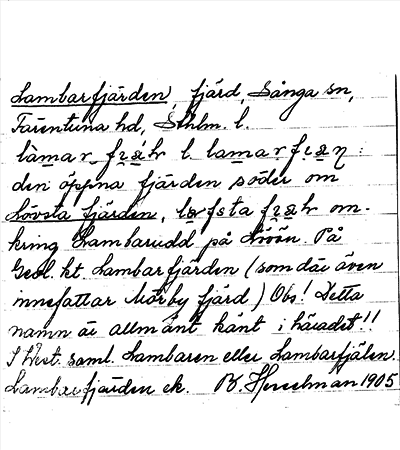 Lambarfjärden, fjärd, Sånga sn,
Färentuna hd, Sthlm. l.
den öppna fjärden söder om
Lövsta fjärden, om-
kring Lambarudd på Lovön. På
Geol. kt. Lambarfjärden (som där även
innefattar Mörby fjärd) Obs! Detta
namn är allmänt känt i häradet!!
I West. saml. Lambaren eller Lambarfjälen
Lambarfjärden ek. B. Hesselman 1905